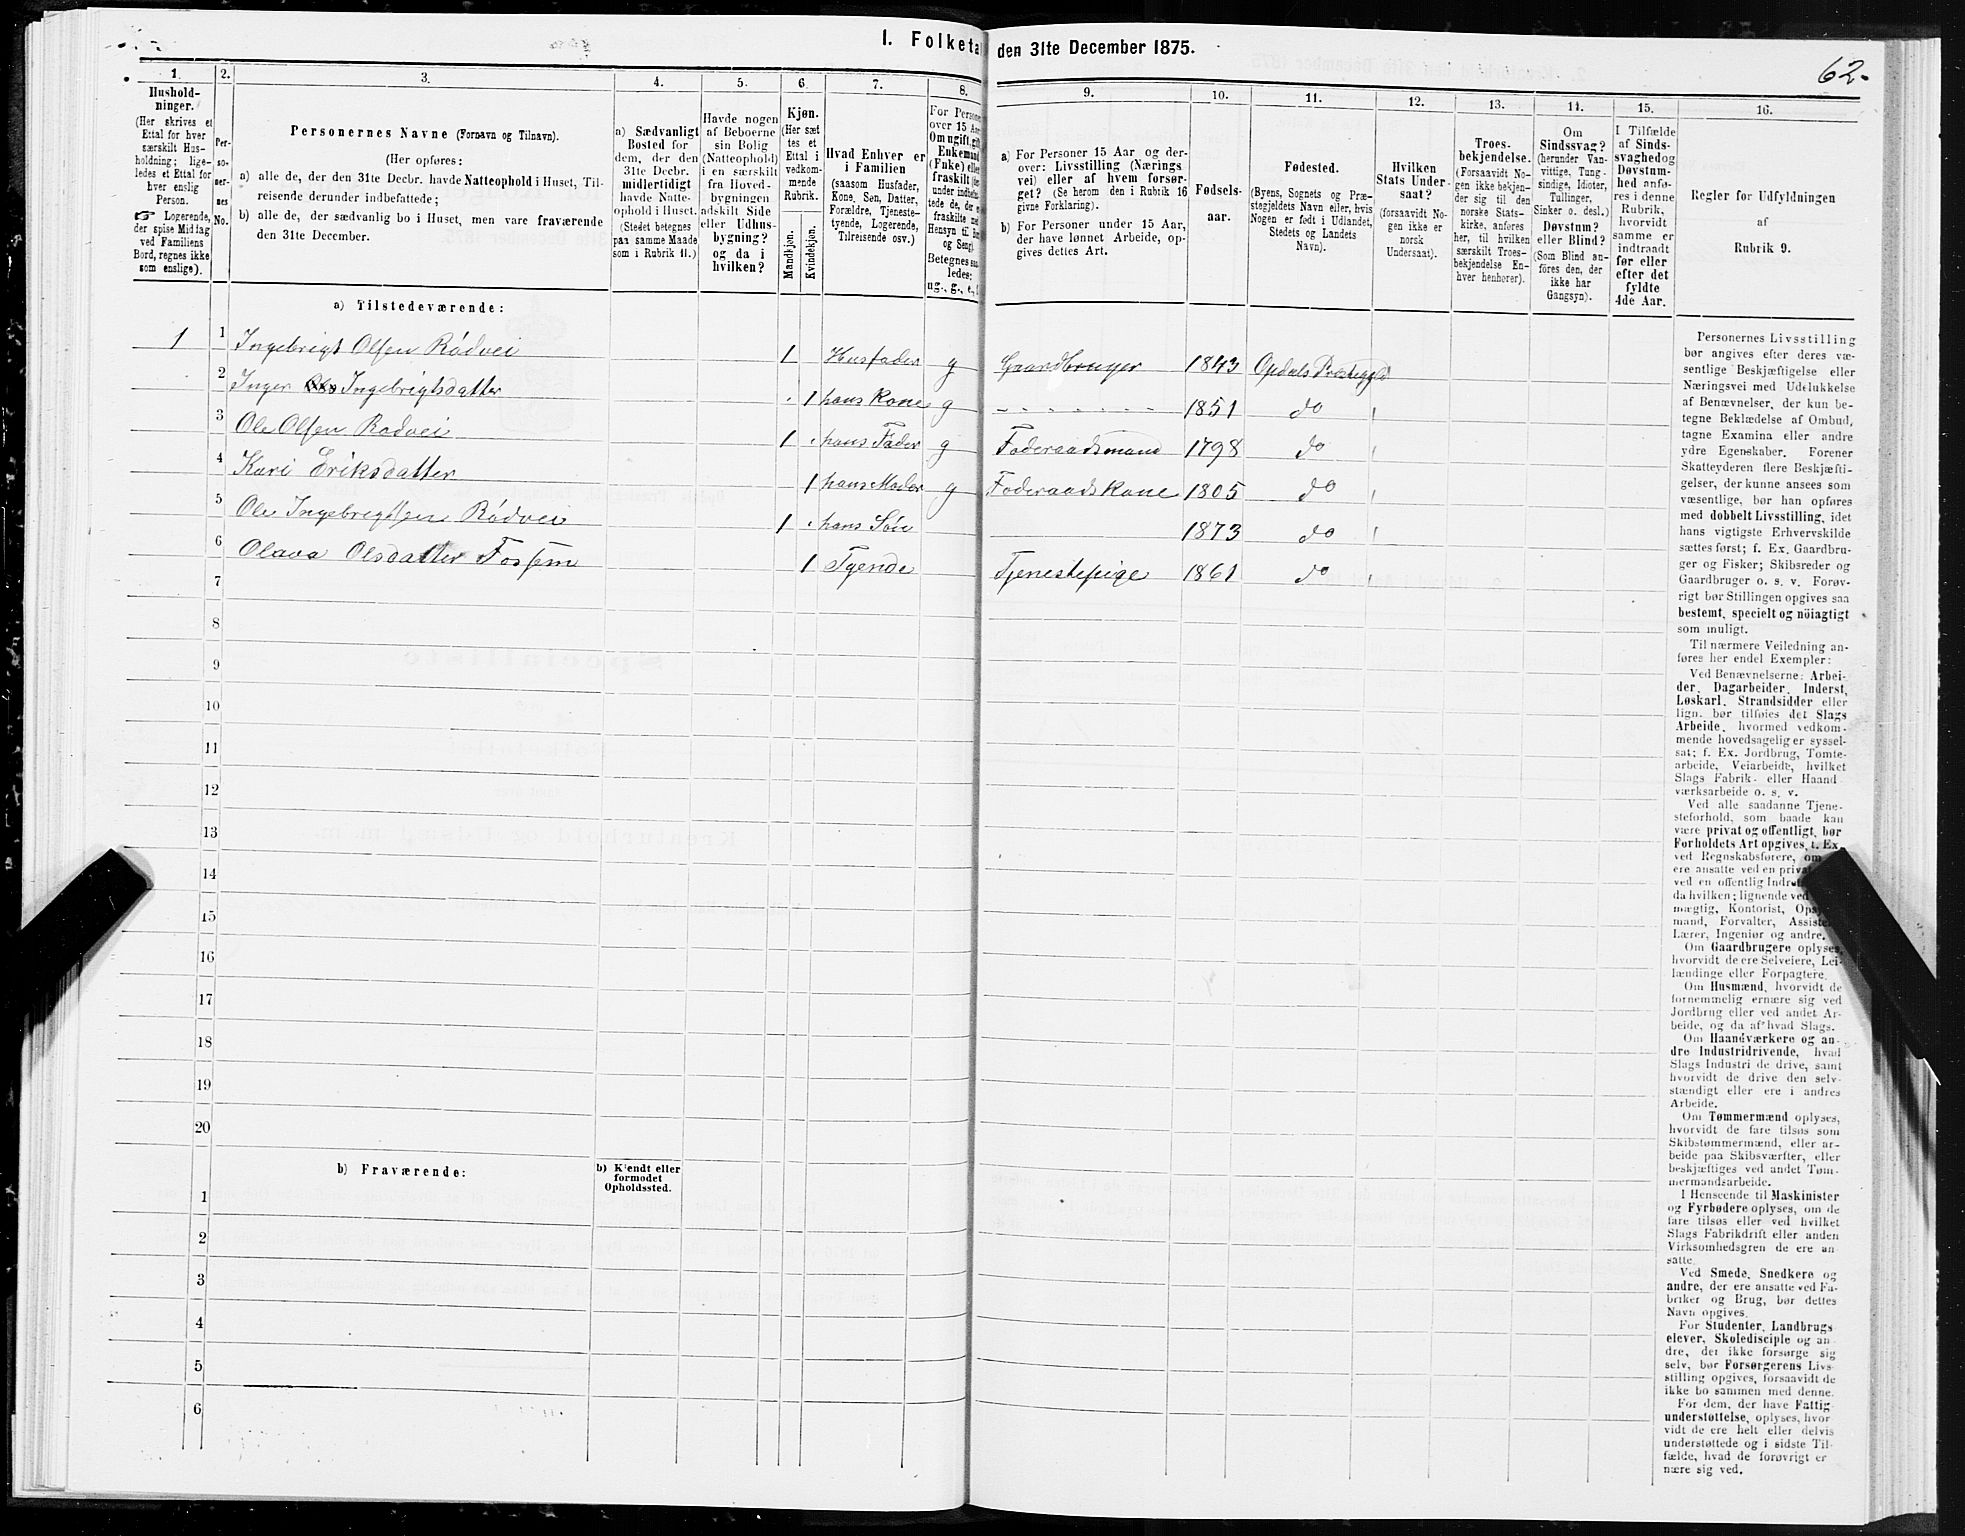 I. Folketa den 31te December 1875.
62.
1. 2. 3. 4. 5. 6. 7. 8. 9. 10. 11. 12. 13. 14. 15. 16.
Hushold-
ninger.
(Her skrives et
Ettal for hver
særskilt Hus-
holdning; lige-
ledes et Ettal for
hver enslig
Person.
☞ Logerende,
der spise Middag
ved Familiens
Bord, regnes ikke
som enslige).
Per-
so-
ner-
nes
No.
Personernes Navne (Fornavn og Tilnavn).
(Her opføres:
a) alle de, der den 31te Decbr. havde Natteophold i Huset, Til-
reisende derunder indbefattede;
b) alle de, der sædvanlig bo i Huset, men vare fraværende
den 31te December.
a) Sædvanligt
Bosted for
dem, der den
31te Decbr.
midlertidigt
havde Natte-
ophold i Huset.
(Stedet betegnes
paa samme Maade
som i Rubrik 11.)
Havde nogen
af Beboerne
sin Bolig
(Natteophold)
i en særskilt
fra Hoved-
bygningen
adskilt Side
eller Udhus-
bygning?
og da i
hvilken?
Kjøn.
(Her sæt
tes et
Ettal i
vedkom-
mende
Rubrik.
Mandkjøn.
Kvindekjøn.
Hvad Enhver er
i Familien
(saasom Husfader,
Kone, Søn, Datter,
Forældre, Tjeneste-
tyende, Logerende,
Tilreisende osv.)
For Persone
over 15 Aar
Om ugift, gift,
Enkemand
(Enke) eller
fraskilt
under indbefat-
tede de, der e
fraskilte me
Hensyn til
og Seng).
Betegnes saa
ledes:
ug., g., e.,
a) For Personer 15 Aar og der-
over: Livsstilling (Nærings
vei) eller af hvem forsør-
get? (Se herom den i Rubrik 16
givne Forklaring.)
b) For Personer under 15 Aar,
der have lønnet Arbeide, op-
gives dettes Art.
Fødsels-
aar.
Fødested.
(Byens, Sognets og Præ-
stegjeldets Navn eller, hvis
Nogen er født i Udlandet,
Stedets og Landets
Navn).
Hvilken
Stats Under-
saat?
(forsaavidt No-
gen ikke er
norsk
Undersaat).
Troes-
bekjendelse.
(Forsaavidt No-
gen ikke bekjen-
der sig til den
norske Stats-
kirke, anføres
her, til hvilken
særskilt Troes-
bekjendelse En-
hver henhører).
Om
Sindssvag?
(herunder Van-
vittige, Tung-
sindige, Idioter,
Tullinger,
Sinker o. desl.)
Døvstum?
eller Blind?
(Som Blind an-
føres den, der
ikke har
Gangsyn).
I Tilfælde
af Sinds-
svaghed og
Døvstum-
hed anfø-
res i denne
Rubrik,
hvorvidt
samme er
indtraadt
før eller
efter det
fyldte
4de Aar.
Regler for Udfyldningen
af
Rubrik 9.
a) Tilstedeværende:
1 1 Ingebrigt Olsen Rødvei 1 Husfader g Gaardbruger 1843 Opdals Præstegjeld
2 Inger Ingebrigtsdatter 1 hans Kone g - - - - - - - 1851 do
3 Ole Olsen Rødvei 1 hans Fader g Føderaadsmand 1798 do
4 Kari Eriksdatter 1 hans Moder g Føderaadskone 1805 do
5 Ole Ingebrigtsen Rødvei 1 hans Søn 1873 do
6 Olava Olsdatter Fossem 1 Tyende Tjenestepige 1861 do
7
8
9
10
11
12
13
14
15
16
17
18
19
20
b) Fraværende:
b) Kjendt eller
formodet
Opholdssted.
1
2
3
4
5
6
Personernes Livsstilling
bør angives efter deres væ-
sentlige Beskjæftigelse eller
Næringsvei med Udelukkelse
af Benævnelser, der kun be-
tegne Beklædelse af Ombud,
tagne Examina eller andre
ydre Egenskaber. Forener
Skatteyderen flere Beskjæfti-
gelser, der kunne ansees som
væsentlige, bør han opføres
med dobbelt Livsstilling, idet
hans vigtigste Erhvervskilde
sættes først; f. Ex. Gaardbru-
ger og Fisker; Skibsreder og
Gaardbruger o. s. v. Forøv-
rigt bør Stillingen opgives saa
bestemt, specielt og nöiagtigt
som muligt.
Til nærmere Veiledning an-
føres her endel Exempler:
Ved Benævnelserne: Arbei-
der, Dagarbeider, Inderst,
Løskarl, Strandsidder eller
lign. bør tilføies det Slags
Arbeide, hvormed vedkom-
mende hovedsagelig er syssel-
sat; f. Ex. Jordbrug, Tomte-
arbeide, Veiarbeide, hvilket
Slags Fabrik- eller Haand
værksarbeide o. s. v.
Ved alle saadanne Tjene-
steforhold, som baade kan
være privat og offentligt, bør
Forholdets Art opgives, t. Ex.
ved Regnskabsførere, om
ere ansatte ved en privat
ved en offentlig Indre
da hvilken; lignende ved
mægtig, Kontorist, Ops
mand, Forvalter, Assiste
Lærer, Ingeniør og andre.
Om Gaardbrugere oplyses,
hvorvidt de ere Selveiere, Lei-
lændinge eller Forpagtere.
Om Husmænd, hvorvidt de
fornemmelig ernære sig ved
Jordbrug eller ved andet Ar-
beide, og da af hvad Slags.
Om Haandværkere og an-
dre Industridrivende, hvad
Slags Industri de drive, samt
hvorvidt de drive den selv-
stændigt eller ere i andres
Arbeide.
Om Tømmermænd oplyses,
hvorvidt de fare tilsøs som
Skibstømmermænd, eller ar-
beide paa Skibsværfter, eller
beskjæftiges ved andet Tøm-
mermandsarbeide.
I Henseende til Maskinister
og Fyrbødere oplyses, om de
fare tilsøs eller ved hvilket
Slags Fabrikdrift eller anden
Virksomhedsgren de ere an-
satte.
Ved Smede, Snedkere og
andre, der ere ansatte ved Fa-
briker og Brug, bør dettes
Navn opgives.
For Studenter, Landbrugs
elever, Skoledisciple og an-
dre, der ikke forsørge sig
selv, bør Forsørgerens Livs-
stilling opgives, forsaavidt de
ikke bo sammen med denne.
For dem, der have Fattig-
understøttelse, oplyses, hvor
vidt de ere helt eller delvis
understøttede og i sidste Til-
fælde, hvad de forøvrigt er
nære sig ved.